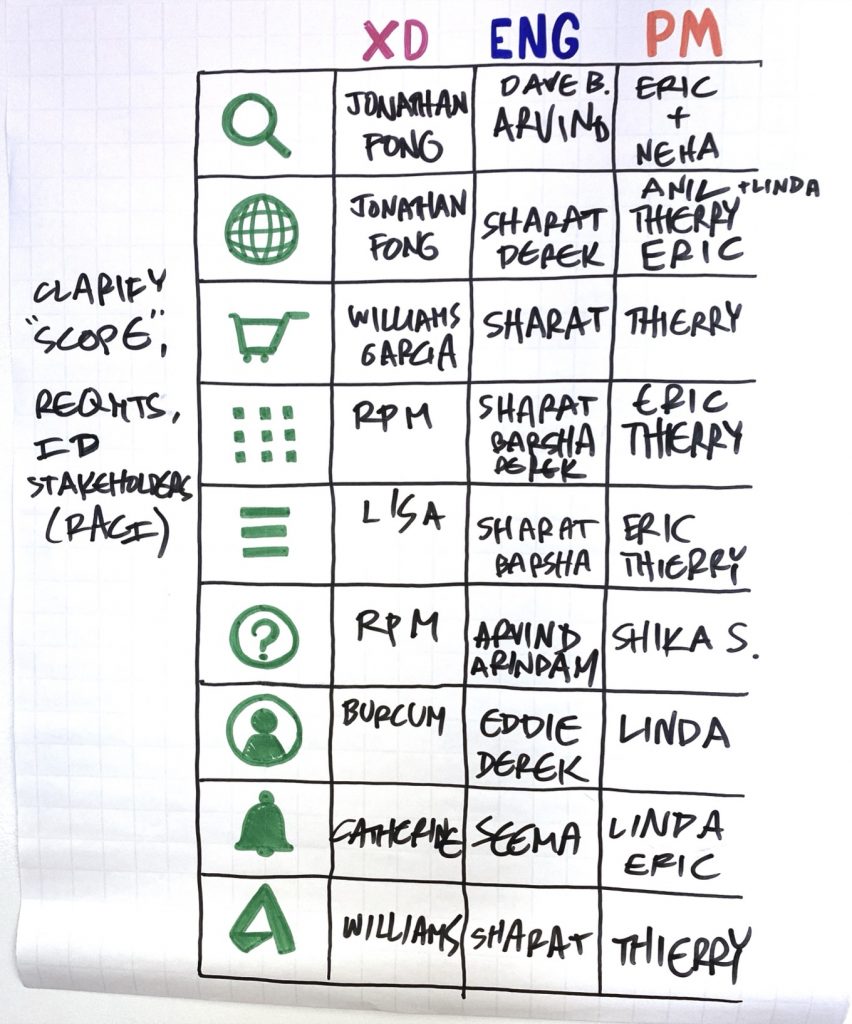 XD ENG PM
JONATHAN
FONG
DAVE B.
ARVIND
ERIC
+
NEHA
JONATHAN
FONG
SHARAT
DEREK
ANIL +LINDA
THIERRY
ERIC
CLARIFY
"SCOPE",
REQMTS,
ID
STAKEHOLDERS
(RACI)
WILLIAMS
GARCIA
SHARAT
THIERRY
RPM
SHARAT
BARSHA
DEREK
ERIC
THIERRY
LISA
SHARAT
BARSHA
ERIC
THIERRY
?
RPM
ARVIND
ARINDAM
SHIKA S.
BURCUM
EDDIE
DEREK
LINDA
CATHERINE
SEEMA
LINDA
ERIC
WILLIAMS
SHARAT
THIERRY